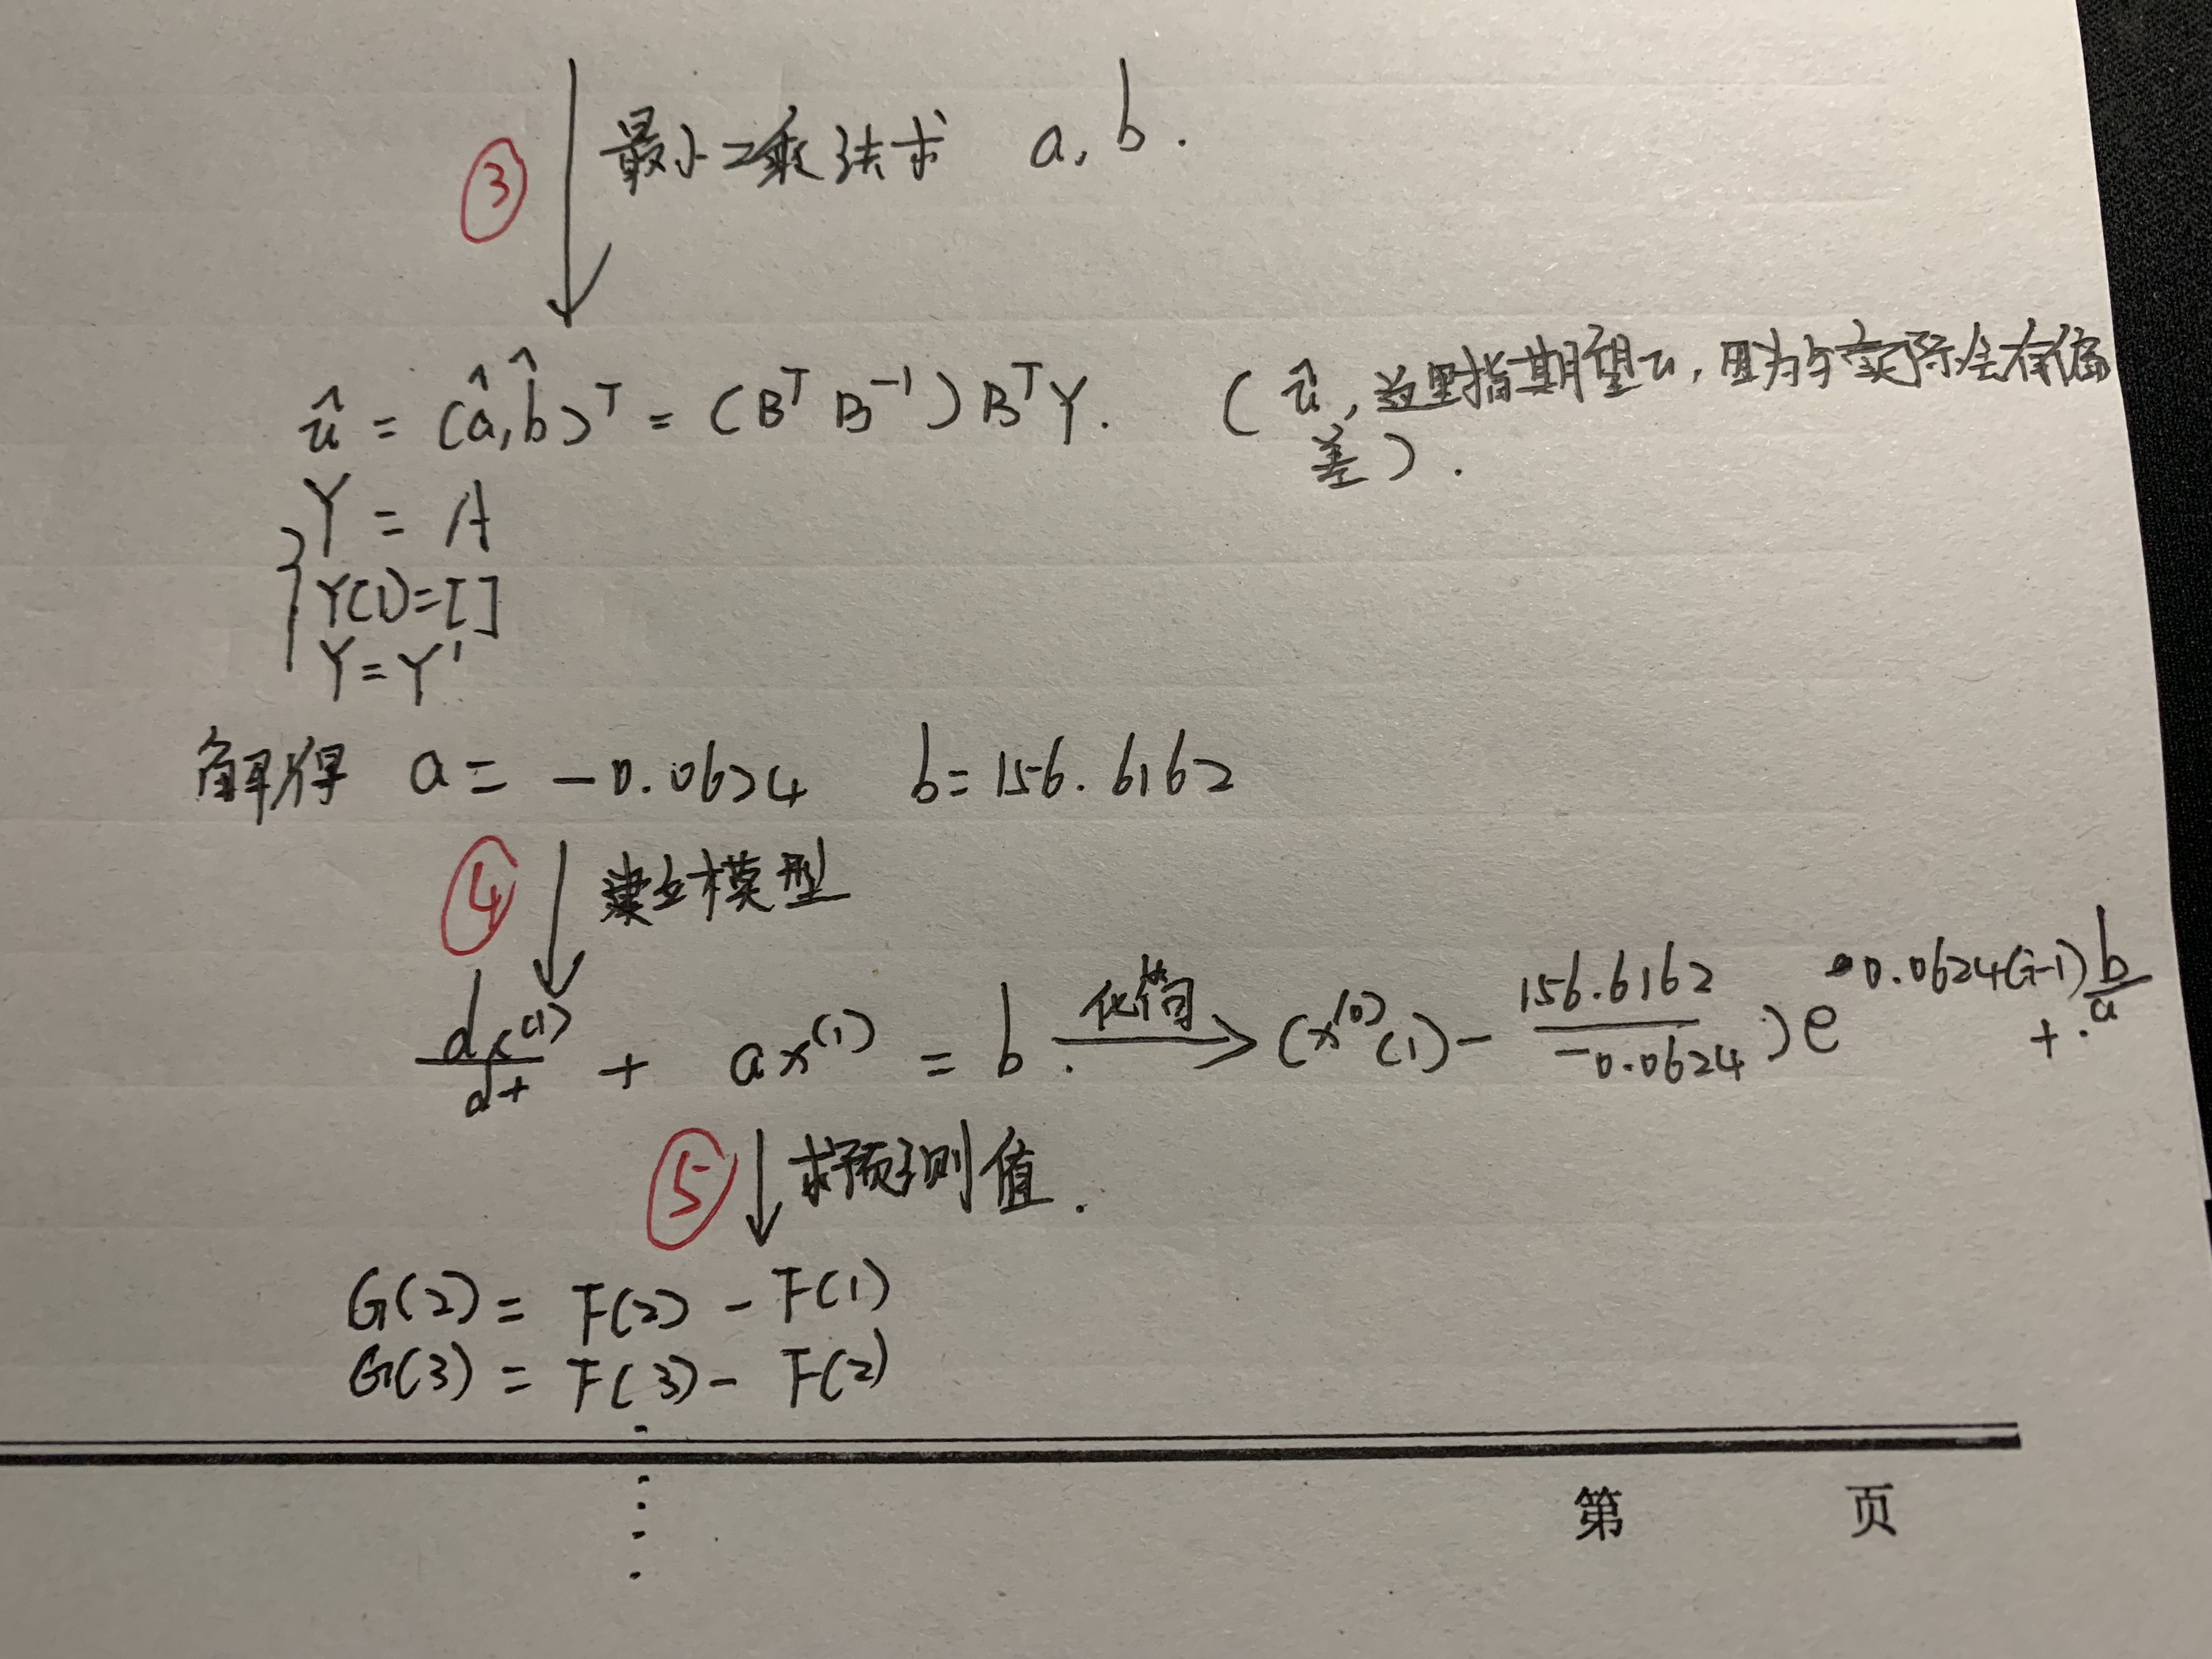 ③ 最小二乘法求 a, b.
û = (â, b̂)ᵀ = (Bᵀ B⁻¹) BᵀY. (û, 这里指期望u, 因为与实际会有偏
差).
Y = A
Y(1)=[]
Y=Y'
解得 a = -0.0624 b=156.6162
④ 建立模型
dx⁽¹⁾/dt + ax⁽¹⁾ = b. 化简→ (x⁽⁰⁾(1) - 156.6162/-0.0624)e^0.0624(i-1) + b/a.
⑤ 求预测值.
G(2) = F(2) - F(1)
G(3) = F(3) - F(2)
第 页